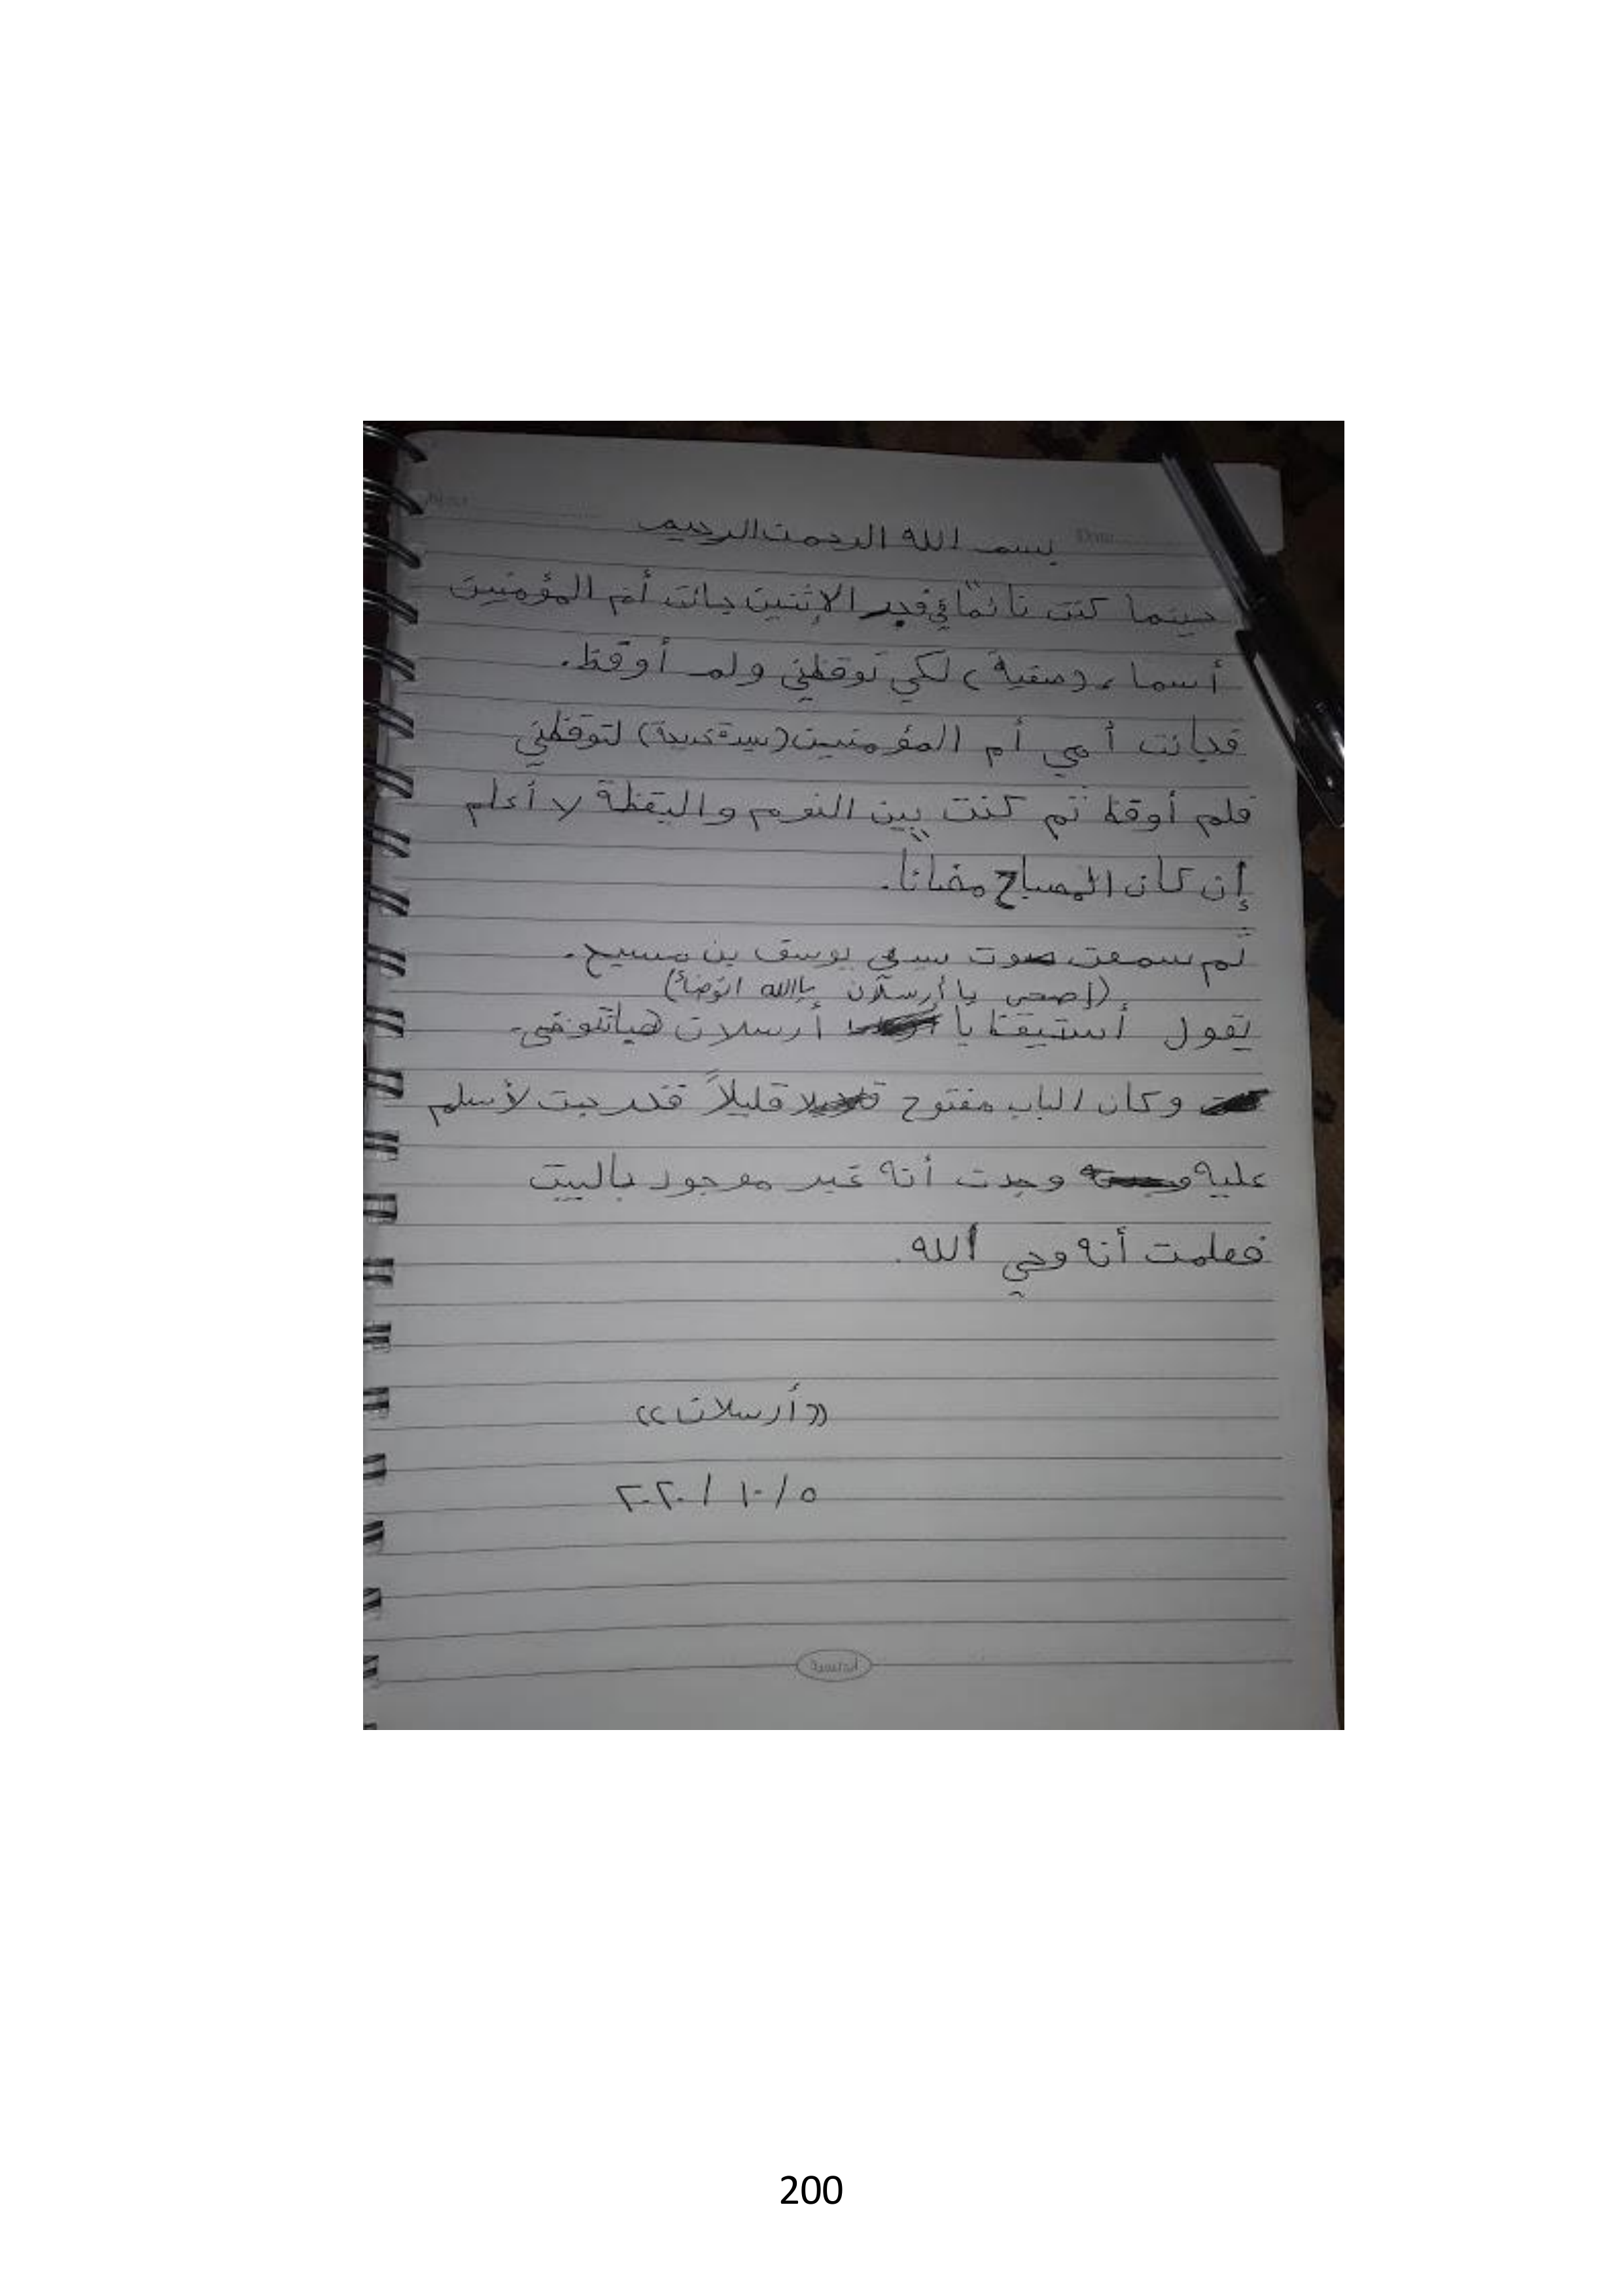 بسم الله الرحمن الرحيم
حينما كنت نائمًا في فجر الإثنين جائت أم المؤمنين
أسماء (صفية) لكي توقظني ولم أوقظ.
فجائت أمي أم المؤمنين (سيدة خديجة) لتوقظني
فلم أوقظ ثم كنت بين النوم واليقظة لا أعلم
إن كان المصباح مضائاً.
ثم سمعت صوت سيدي يوسف بن مسيح.
(إصحى يا أرسلان يالله اتوضأ)
يقول أستيقظ يا أرسلان هيا
وكان الباب مفتوح قليلاً فخرجت لأسلم
عليه وجدت أنه غير موجود بالبيت
فعلمت أنه وحي الله.
((أرسلان))
٥/ ١٠/ ٢٠٢٠
200